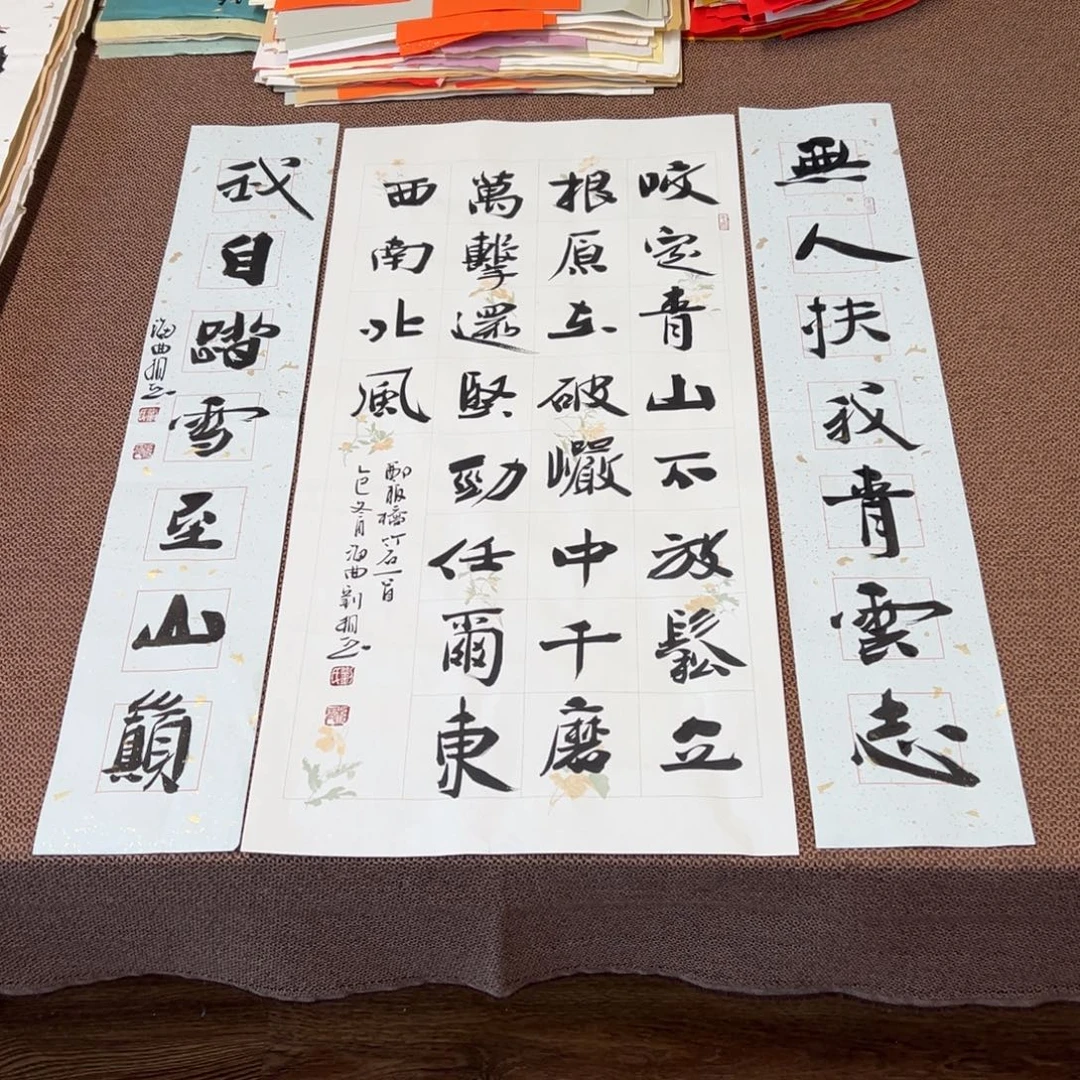 無人扶我青雲志
咬定青山不放鬆立
根原在破巗中千磨
萬擊還堅勁任爾東
西南北風
鄭板橋竹石一首
乙巳冬月海曲劉相
我自踏雪至山巔
海曲相